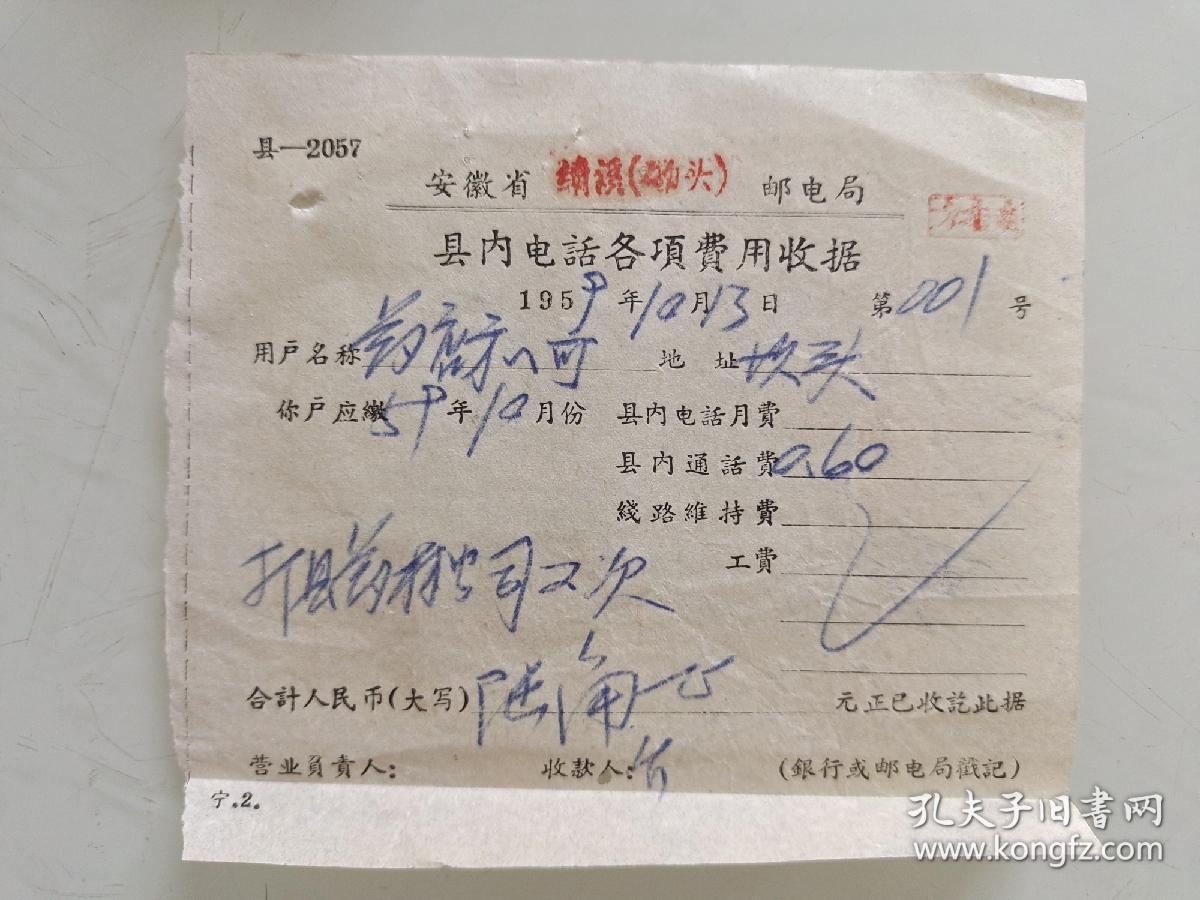 县—2057
安徽省 绩溪(坳头) 邮电局
县内电話各項費用收据
1959年10月13日 第001号
用戶名称 地址 坎头
你戶应繳59年10月份 县内电話月費
县内通話費0.60
綫路維持費
工費
打县药材公司又次
合計人民币(大写)陆角正 元正已收訖此据
营业負責人: 收款人: (銀行或邮电局戳記)
宁.2.
孔夫子旧书网
www.kongfz.com